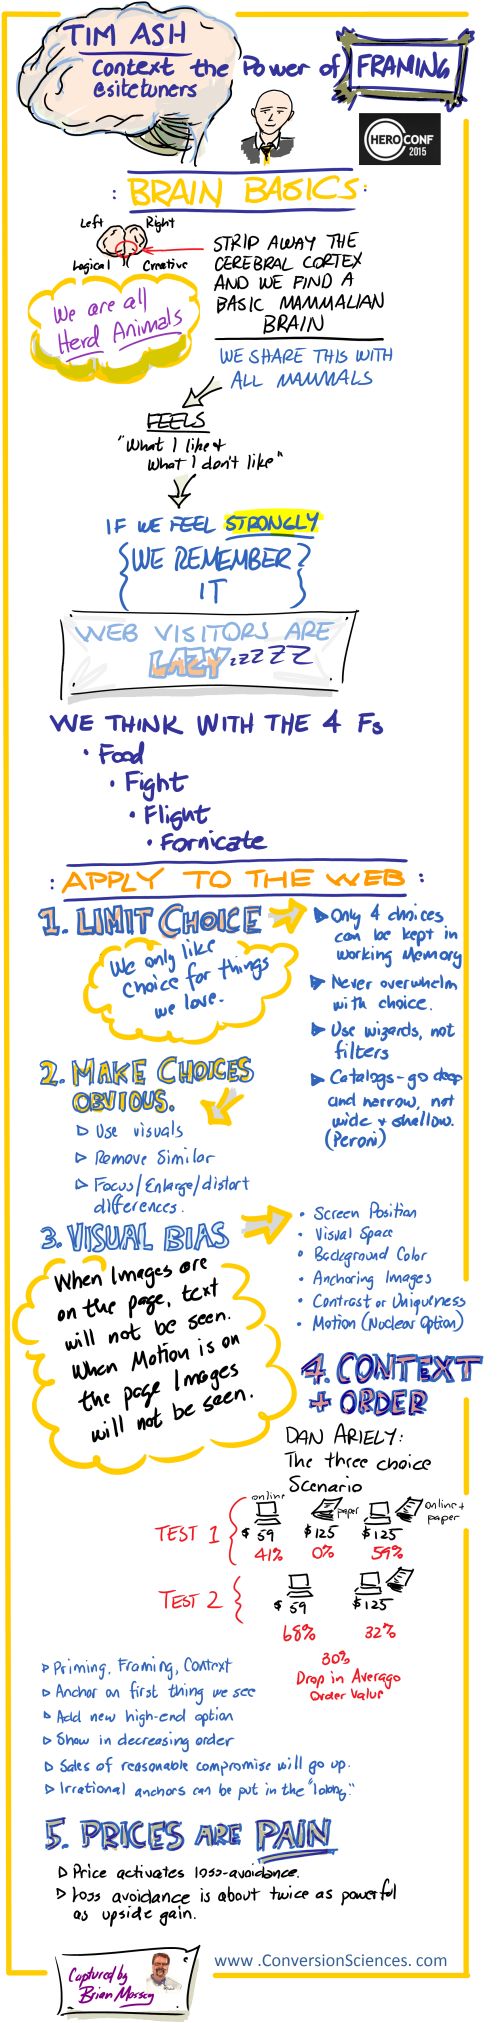 TIM ASH
Context the Power of FRAMING
@sitetuners
HEROCONF
2015
: BRAIN BASICS:
Left Right
Logical Creative
STRIP AWAY THE
CEREBRAL CORTEX
AND WE FIND A
BASIC MAMMALIAN
BRAIN
We are all
Herd Animals
WE SHARE THIS WITH
ALL MAMMALS
FEELS
"What I like +
What I don't like"
IF WE FEEL STRONGLY
WE REMEMBER
IT
WEB VISITORS ARE
LAZY..zzZZZZ
WE THINK WITH THE 4 Fs
• Food
• Fight
• Flight
• Fornicate
: APPLY TO THE WEB :
1. LIMIT CHOICE
We only like
choice for things
we love.
Only 4 choices
can be kept in
working Memory
Never overwhelm
with choice.
Use wizards, not
filters
Catalogs - go deep
and narrow, not
wide + shallow.
(Peroni)
2. MAKE CHOICES
OBVIOUS.
Use visuals
Remove Similar
Focus/Enlarge/distort
differences.
3. VISUAL BIAS
• Screen Position
• Visual Space
• Background Color
• Anchoring Images
• Contrast or Uniqueness
• Motion (Nuclear Option)
When Images are
on the page, text
will not be seen.
When Motion is on
the page Images
will not be seen.
4. CONTEXT
+ ORDER
DAN ARIELY:
The three choice
Scenario
online paper online + paper
TEST 1 $59 $125 $125
41% 0% 59%
TEST 2 $59 $125
68% 32%
30%
Drop in Average
Order Value
Priming, Framing, Context
Anchor on first thing we see
Add new high-end option
Show in decreasing order
Sales of reasonable compromise will go up.
Irrational anchors can be put in the
5. PRICES ARE PAIN
Price activates loss-avoidance.
Loss avoidance is about twice as powerful
as upside gain.
Captured by
Brian Massey
www .ConversionSciences. com